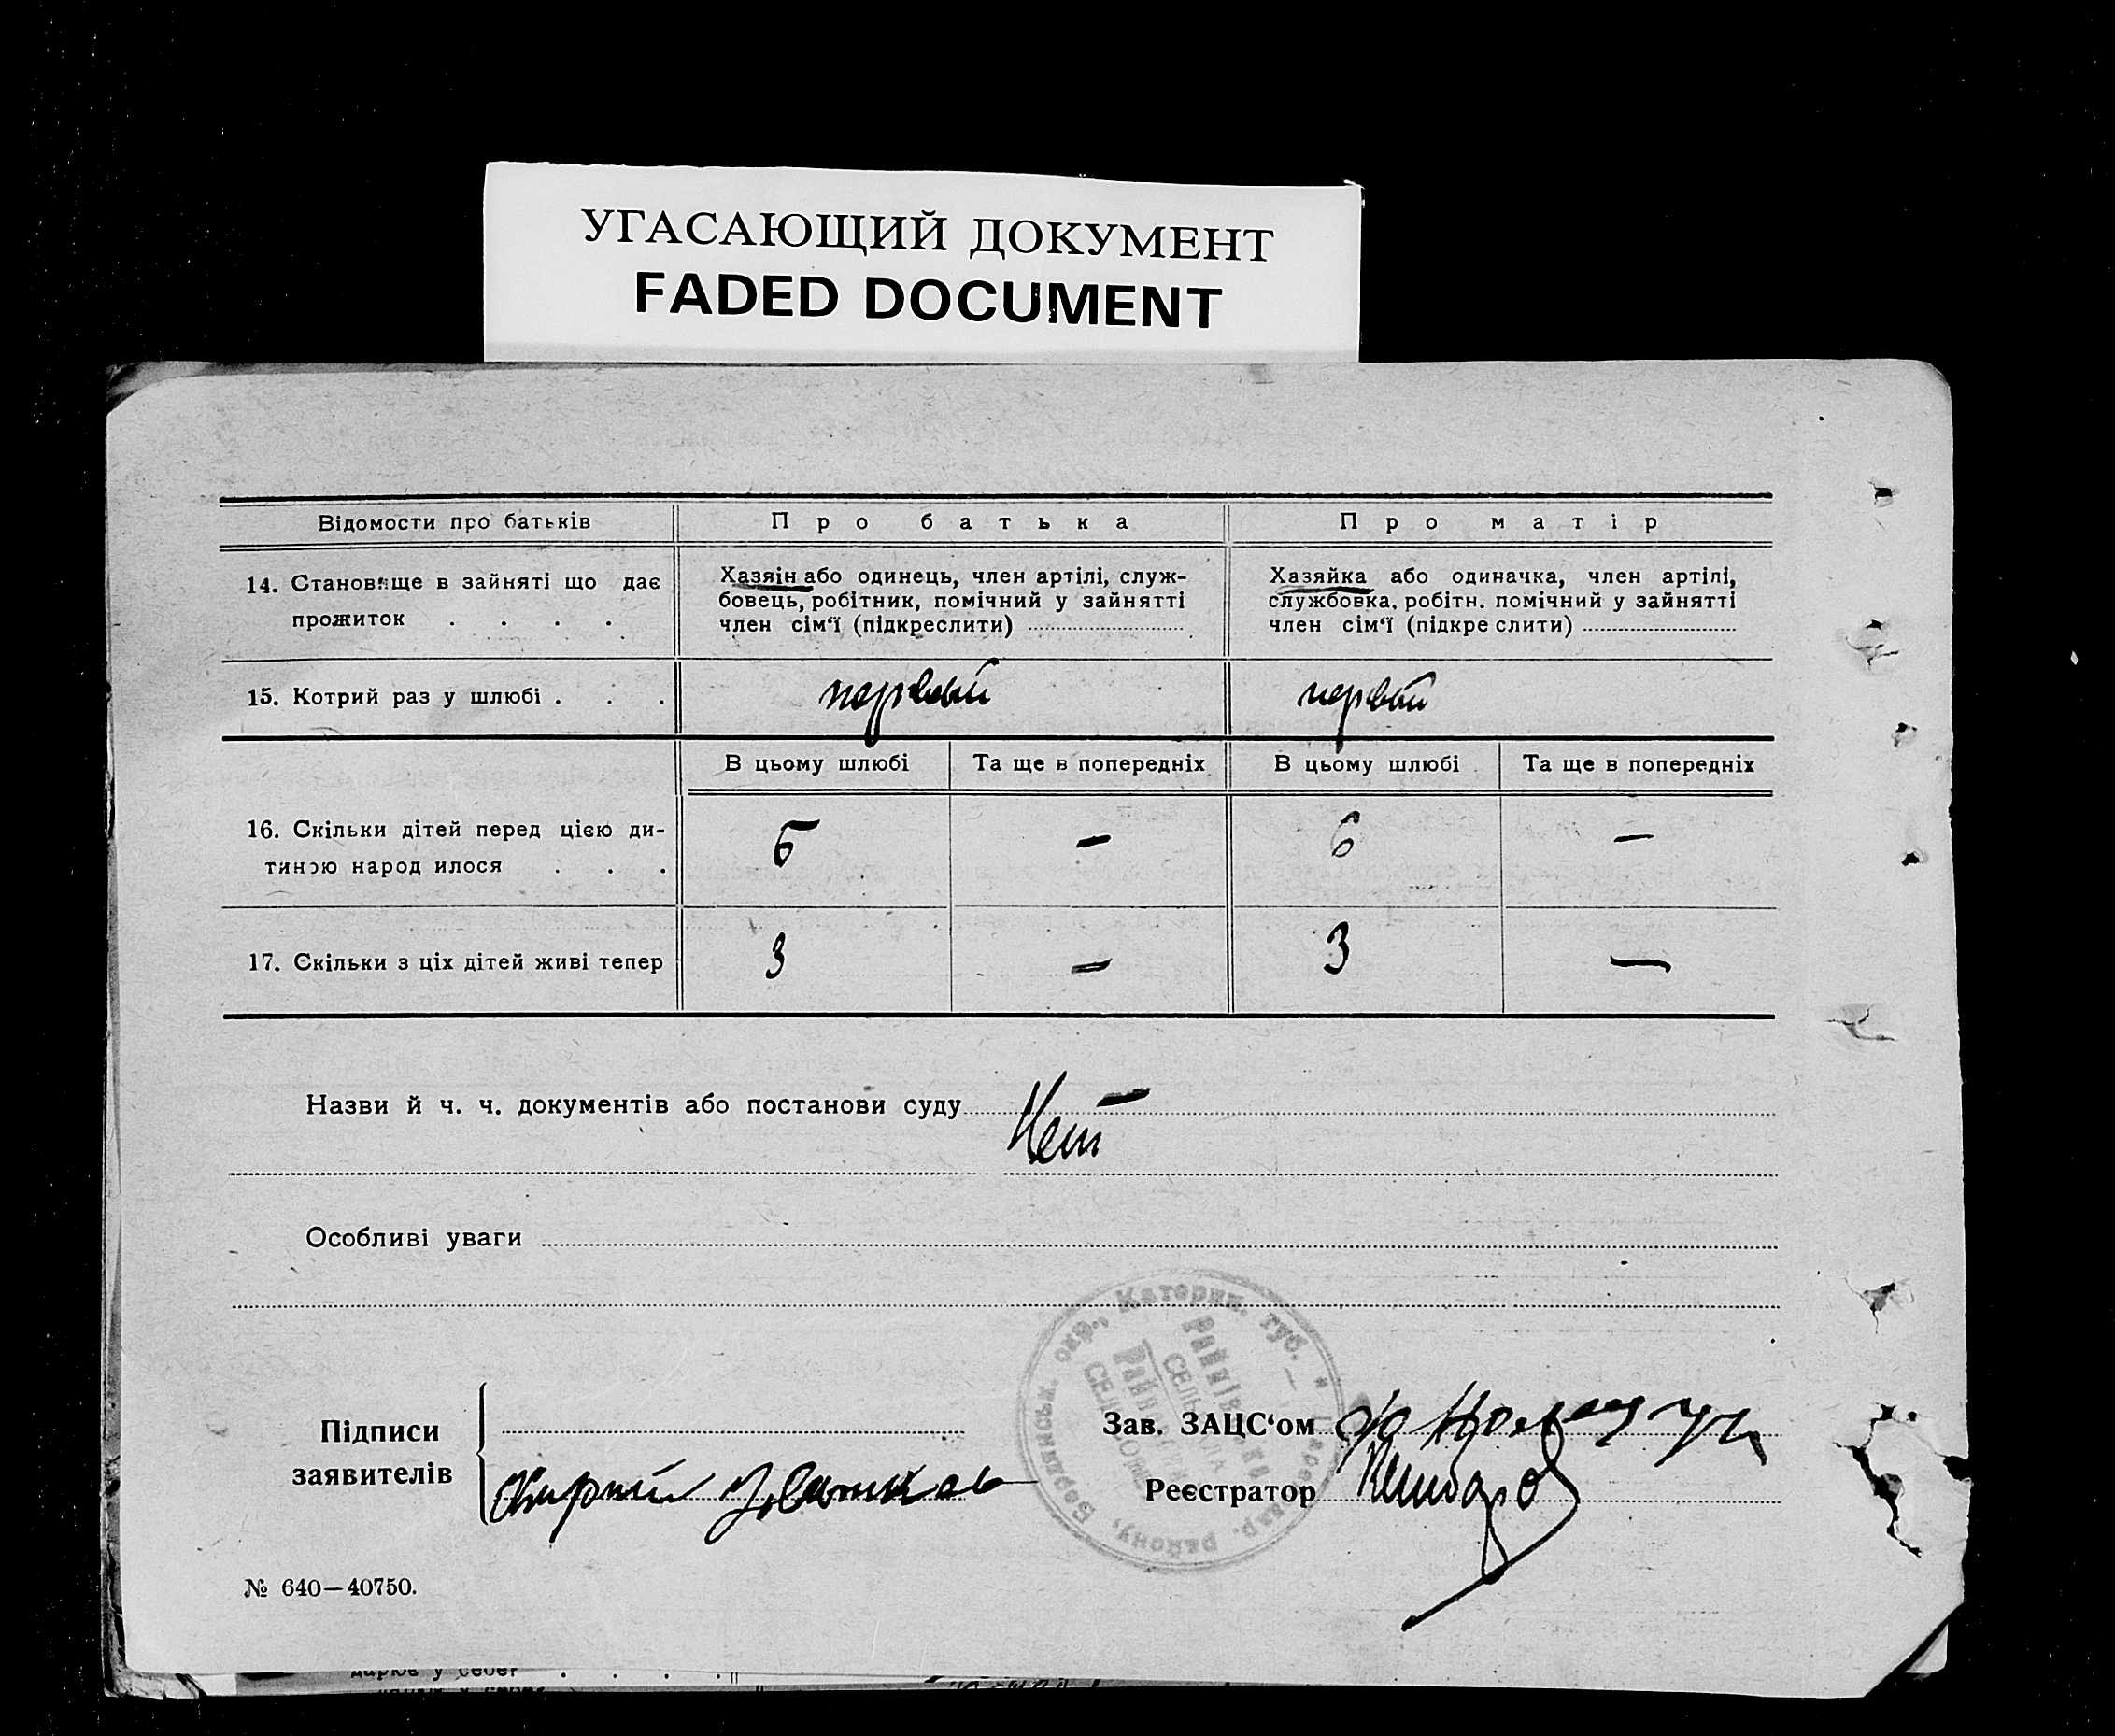 УГАСАЮЩИЙ ДОКУМЕНТ
FADED DOCUMENT
Відомости про батьків
Про батька
Про матір
14. Становище в зайняті що дає
прожиток . . . .
Хазяїн або одинець, член артілі, служ-
бовець, робітник, помічний у зайнятті
член сім‘ї (підкреслити)
Хазяйка або одиначка, член артілі,
службовка, робітн. помічний у зайнятті
член сім‘ї (підкреслити)
15. Котрий раз у шлюбі . . .
первый
первый
В цьому шлюбі
Та ще в попередніх
В цьому шлюбі
Та ще в попередніх
16. Скільки дітей перед цією ди-
тиною народилося . . .
6
—
6
—
17. Скільки з ціх дітей живі тепер
3
—
3
—
Назви й ч. ч. документів або постанови суду
Нет
Особливі уваги
Бердянськ. окр., Катерин. губ.
району,
Підписи
заявителів
Зав. ЗАЦС‘ом
Реєстратор
№ 640—40750.